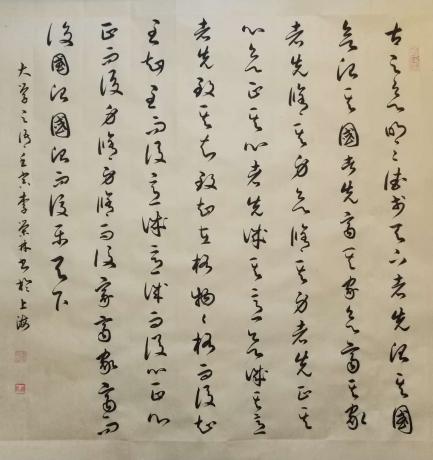 古之欲明〻德於天下者先治其國
欲治其國者先齊其家欲齊其家
者先脩其身欲脩其身者先正其
心欲正其心者先誠其意欲誠其意
者先致其知致知在格物〻格而後知
至知至而後意誠意誠而後心正心
正而後身脩身脩而後家齊家齊而
後國治國治而後平天下
大学之語壬寅李榮林书於上海